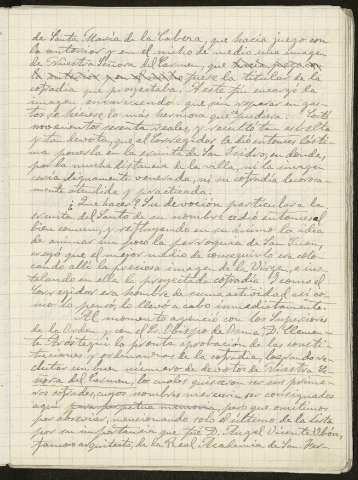 de Santa María de la Cabeza, que hacía juego con
la anterior y en el nicho de medio una imagen
de Nuestra Señora del Carmen, que hacía juego con
la anterior y en el nicho fuese la titular de la
cofradía que proyectaba. A este fin encargó la
imagen encareciendo que sin reparar en gas-
tos se hiciese lo más hermosa que pudiera. Costó
novecientos sesenta reales, y resultó tan esbelta
y tan devota, que al corregidor le dió entonces lásti-
ma ponerla en la ermita de San Isidro, en donde,
por la mucha distancia de la villa, ni la imagen
sería dignamente venerada, ni su cofradía decorosa-
mente atendida y practicada.
¿Qué hacer? Su devoción particular a la
ermita del Santo de su nombre cedió entonces al
bien común, y reflejando en su ánimo la idea
de animar un poco la parroquia de San Juan,
creyó que el mejor medio de conseguirlo era colo-
cando allí la preciosa imagen de la Virgen, e ins-
talando en ella la proyectada cofradía. Y como el
Corregidor era hombre de suma actividad así co-
mo lo pensó lo llevó a cabo inmediatamente.
Al momento agenció con los Superiores
de la Orden y con el Sr. Obispo de Osma D.
la pronta aprobación de las consti-
tuciones y ordenanzas de la cofradía, logrando re-
clutar un buen número de devotos de Nuestra Se-
ñora del Carmen, los cuales quisieron ser sus prime-
ros cofrades, cuyos nombres merecían ser consignados
aquí para perpetua memoria, pero que omitimos
por abreviar, mencionando solo el último de la lista
por su importancia que fué D. Ángel Vicente Ubón,
famoso arquitecto, de la Real Academia de San Fer-